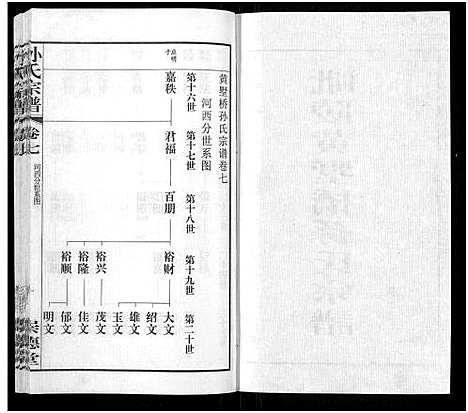 黄墅桥孙氏宗谱卷七
河西分世系图
第十六世
第十七世
第十八世
第十九世
第二十世
嘉秩
君福
百朋
裕财
裕兴
裕隆
裕顺
大文
绍文
雄文
玉文
茂文
佳文
郁文
明文
孙氏宗谱
卷七
河西分世系图